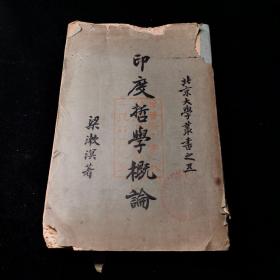 北京大學叢書之五
印度哲學概論
梁漱溟著